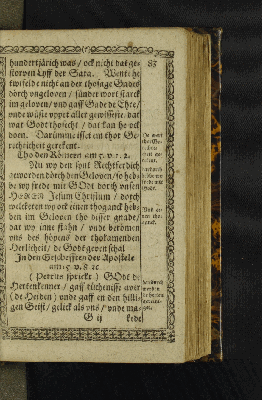 hundertjärich was / ock nicht dat ge-
storven Lyff der Sara. Wente he
twifelde nicht an der thosage Gades
dorch ungeloven / sünder wort starck
im geloven / und gaff Gade de Ehre /
unde wüste uppet aller gewisseste, dat
wat Godt thosecht / dat kan he ock
doen. Darümme isset em thor Ge-
rechticheit gerekent.
Tho den Römern am 5. v. 1. 2.
Nu wy den sünt Rechtferdich
geworden dörch den Geloven / so heb-
be wy frede mit GOdt dorch unsen
HEREN Jesum Christum / dorch
welckeren wy ock einen thoganck heb-
ben im Geloven tho disser gnade /
dar wy inne stahn / unde berömen
uns des höpens der thokamenden
Herlicheit / de Godt geven schal
In den Geschefften der Apostele
am 15 v. 8
(Petrus sprickt) GOdt de
Hertenkenner / gaff tüchenisse aver
(de Heiden) unde gaff en den hilli-
gen Geist / gelick als uns / unde ma-
G ij
kede